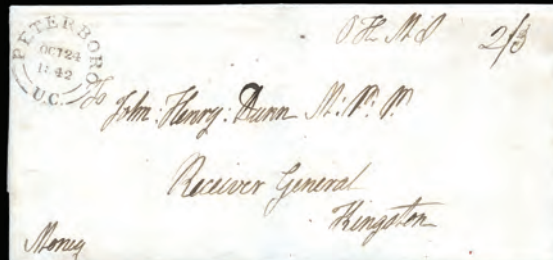 PETERBORO
OCT 24
1842
U.C.
O H M S 2/3
To John: Henry: Dunn M: P: P.
Receiver General
Kingston
Money